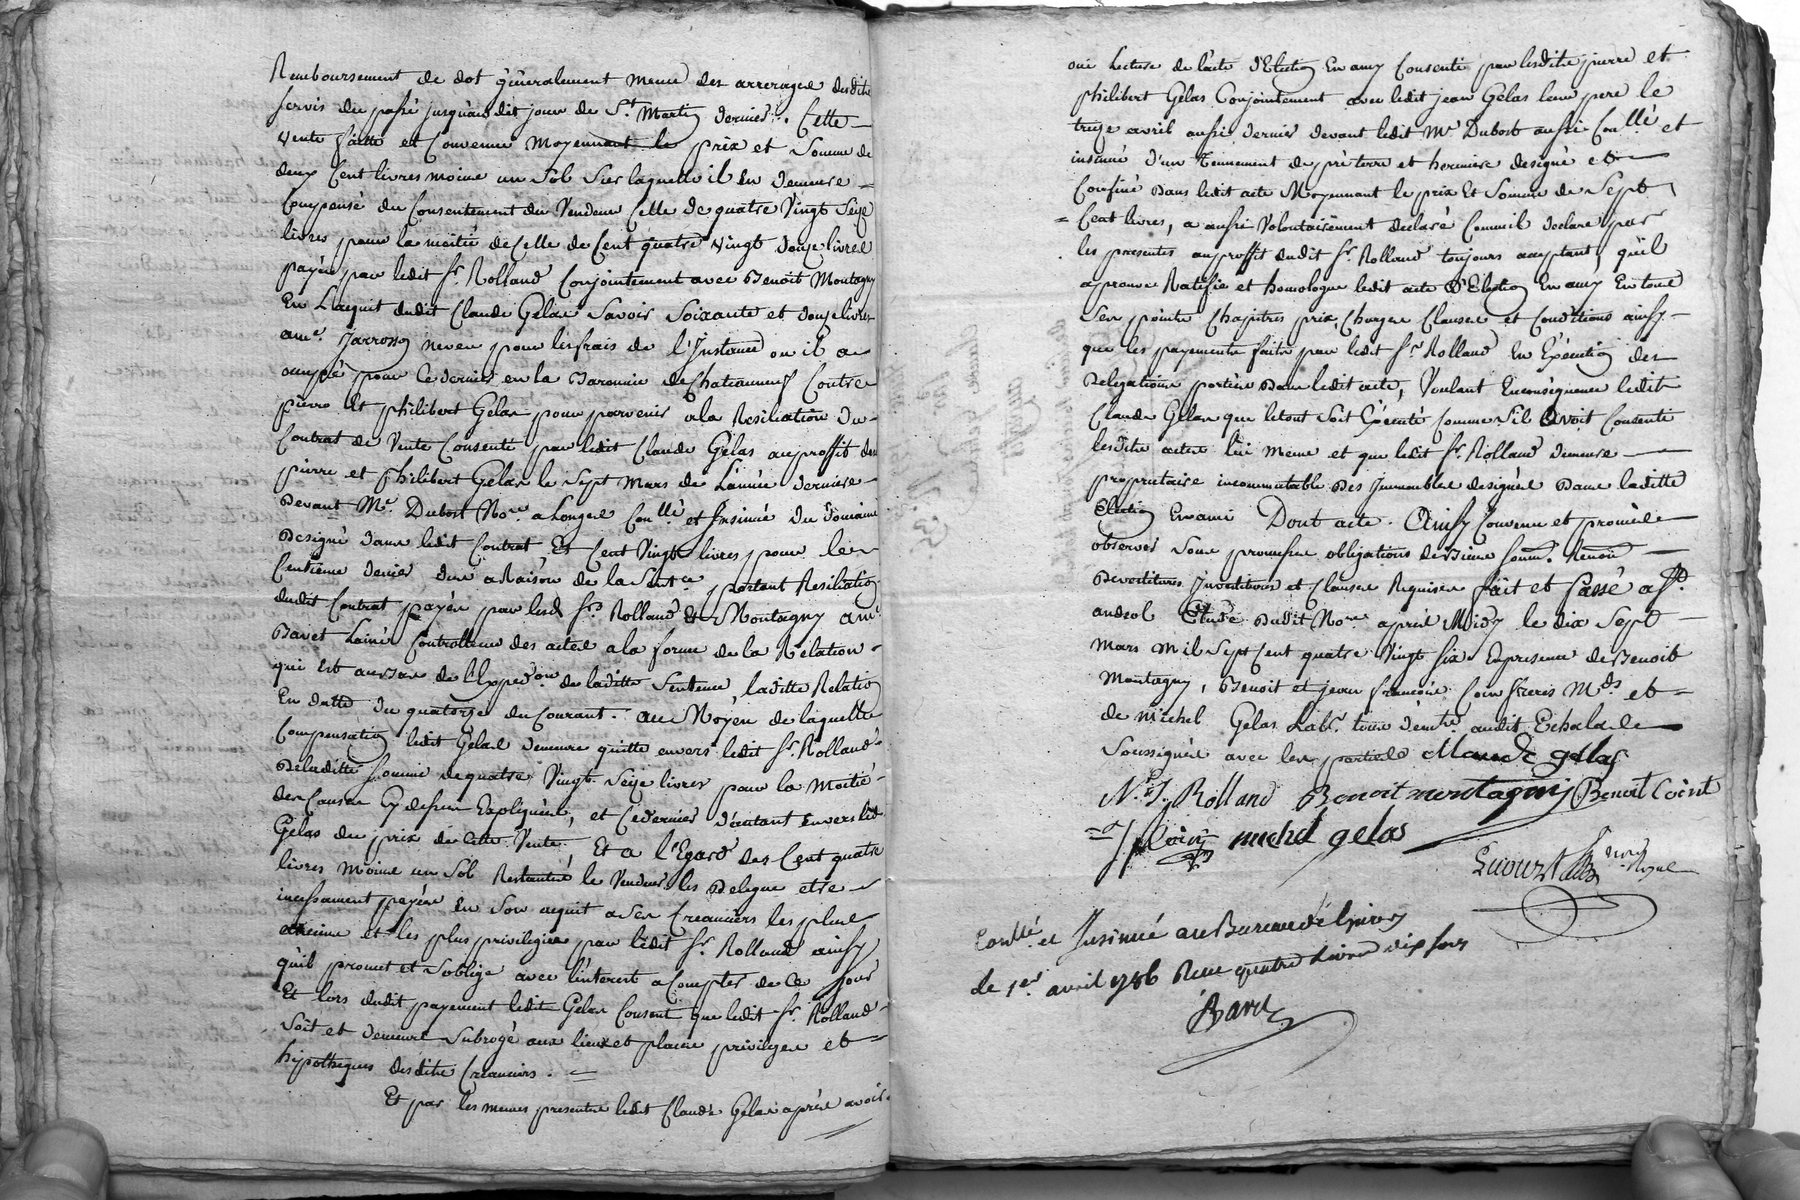 Remboursement de dot généralement meme des arrerages desdits
servis du passé jusquaudit jour de St. Martin dernier. Cette
vente faitte et Convenue moyennant le prix et Somme de
deux Cent livres moins un Sol Sur laquelle il En demeure
Compensé du Consentement du Vendeur Celle de quatre Vingt Seize
livres pour la moitié de Celle de Cent quatre vingt douze livres
payée par ledit Sr. Rolland Conjointement avec Benoit Montagny
En L'acquit dudit Claude Gelas Savoir Soixante et douze livres
a me. Jarrosson neveu pour les frais de l'Instance ou il a
occupé pour Ce dernier en la Baronnie de Chateauneuf Contre
pierre Et philibert Gelas pour parvenir a la Resiliation du
Contrat de Vente Consenti par ledit Claude Gelas auproffit des
pierre et philibert Gelas le Sept Mars de L'année derniere
Devant Me. Dubost Nore. a Longes Conllé. et Insinué du Domaine
Designé dans ledit Contrat, Et Cent Vingt livres pour le
Centieme denier du a Raison de la Sentce. portant Resiliation
dudit Contrat payée par lesd. Srs. Rolland & Montagny a mr.
Bavet Lainé Controlleur des actes a la forme de la Relation
qui Est au bas de l'Expedon. de laditte Sentence, laditte Relation
En datte du quatorze du Courant. au Moyen de laquelle
Compensation ledit Gelas demeure quitte envers ledit Sr. Rolland
De laditte Somme de quatre Vingt Seize livres pour la Moitié
des Causes Cy dessus Expliquées, et Ce dernier d'autant Envers led.
Gelas du prix de Cette Vente. Et a l'Egard des Cent quatre
livres moins un Sol Restantes le Vendeur les Delegue etre
incessament payées en Son acquit a Ses Creanciers les plus
anciens et les plus privilegiés par ledit Sr. Rolland ainsy
qu'il promet et S'oblige avec l'interest a Compter de Ce jour
Et lors dudit payement ledit Gelas Consent que ledit Sr. Rolland
Soit et demeure Subrogé aux lieux et places privileges et
hipotheques desdits Creanciers.
Et par les memes presentes ledit Claude Gelas après avoir
oui Lecture de l'acte d'Election En amy Consenti par lesdits pierre et
philibert Gelas Conjointement avec ledit jean Gelas leur pere le
treize avril aussi dernier devant ledit Me Dubost aussi Conllé. et
insinué d'un Tennement de pré terre et hermiere designé et
Confiné dans ledit acte Moyennant le prix Et Somme de Sept
Cent livres, a aussi Volontairement declaré Comme il declare par
les presentes auproffit dudit Sr. Rolland toujours acceptant, qu'il
approuve Ratifie et homologue ledit acte d'Election En amy En tous
Ses points Chapitres prix, Charges Clauses et Conditions ainsy
que les payements faits par ledit Sr Rolland En Exécution des
Delegations portées dans ledit acte, Voulant En conséquence ledit
Claude Gelas que le tout Soit Exécuté Comme S'il avoit Consenti
lesdits actes lui meme et que ledit Sr. Rolland demeure
proprietaire incommutable des Immeubles designés dans laditte
Election En ami Dont acte. Ainsy Convenu et promis
observer Sous promesses obligations de Biens Soum. Renon.
Devestitures Investitures et Clauses Requises fait et Passé a St.
andeol Etude dudit Nore. après Midy le dix Sept
Mars mil Sept Cent quatre Vingt Six En presence de Benoit
Montagny, Benoit et jean francois Coin freres Mds et
de Michel Gelas Labr. tous demts. audit Echalas
Soussignés avec les parties Claude gelas
N. J. Rolland Benoit montagny Benoit Coint
J f Coin michel gelas
nore. Royal
Conllé. et Insinué au Bureau de Givors
le 1er. avril 1786 Reçu quatre livres dix sous
Bavet